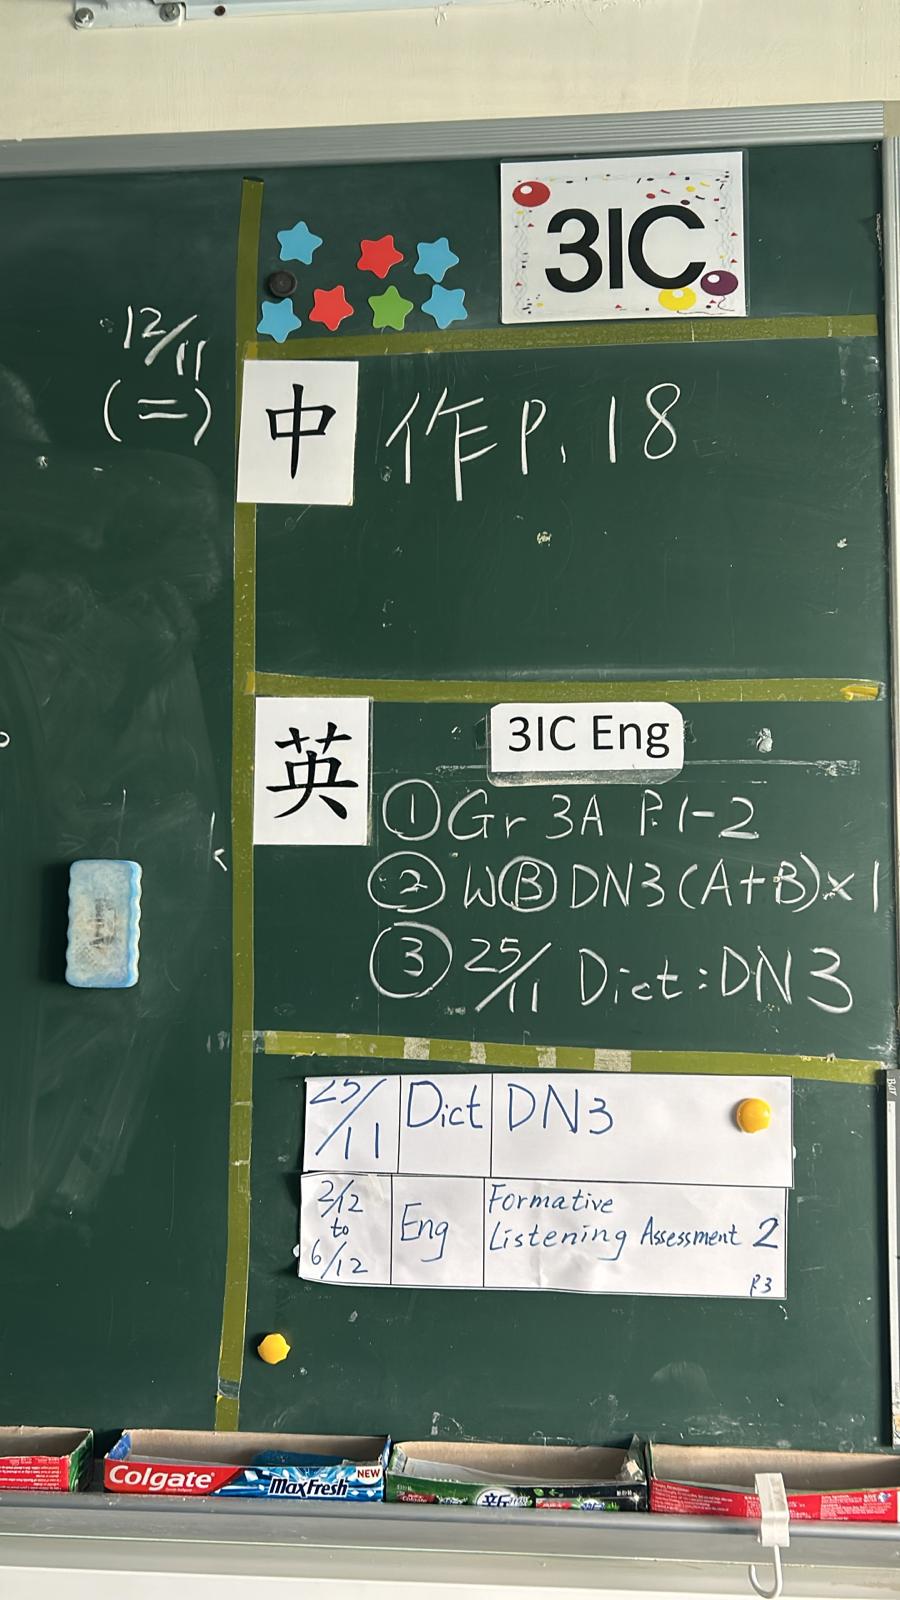 3IC
12/11
(二)
中 作 P. 18
英
3IC Eng
① Gr 3A P.1-2
② W Ⓑ DN3 (A+B) x 1
③ 25/11 Dict : DN 3
25/11 Dict DN3
2/12 to 6/12 Eng Formative Listening Assessment 2
P.3
Colgate
MaxFresh
NEW